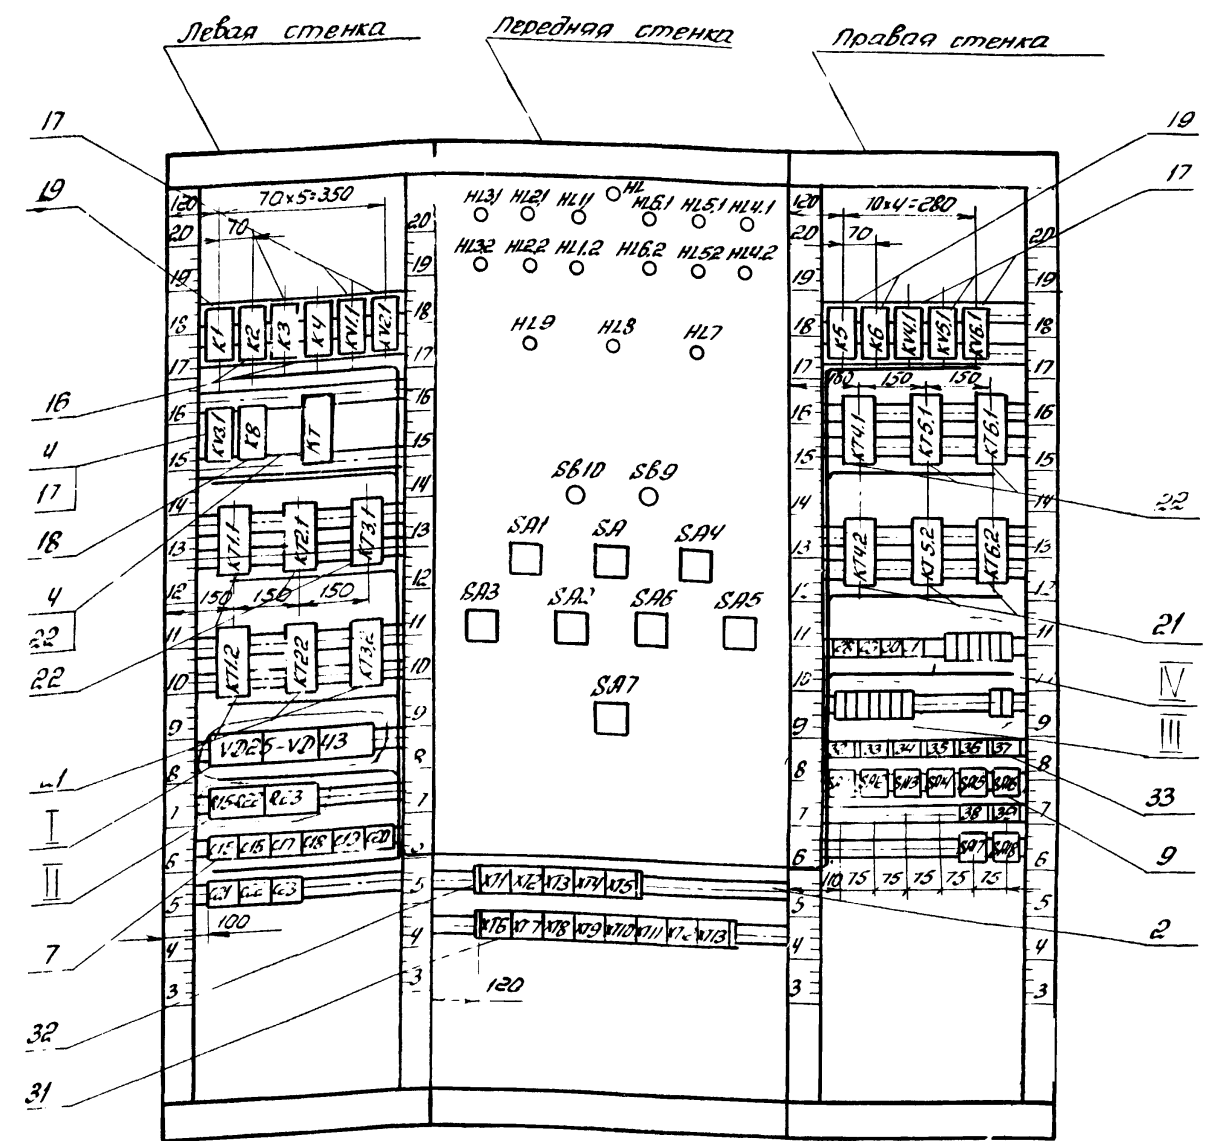 Левая стенка
Передняя стенка
Правая стенка
17
19
16
4
17
18
4
22
22
I
II
7
32
31
19
17
22
21
IV
III
33
9
2
120 70x5=350
70
20
19
18
17
16
15
14
13
12
11
10
9
8
7
6
5
4
3
K1 K2 K3 K4 KV1.1 KV2.1
KV3.1 K8 KT
KT1.1 KT2.1 KT3.1
150 150 150
KT1.2 KT2.2 KT3.2
VD25-VD43
R15-R22 R23
C15 C16 C17 C18 C19 C20
C21 C22 C23
100
20
19
18
17
16
15
14
13
12
11
10
9
8
7
5
4
3
HL
HL3.1 HL2.1 HL1.1 HL6.1 HL5.1 HL4.1
HL3.2 HL2.2 HL1.2 HL6.2 HL5.2 HL4.2
HL9 HL8 HL7
SB10 SB9
SA1 SA SA4
SA3 SA2 SA6 SA5
SA7
XT1 XT2 XT3 XT4 XT5
XT6 XT7 XT8 XT9 XT10 XT11 XT13
120
120 70x4=280
70
20
19
18
17
16
15
14
13
12
11
10
9
8
7
6
5
4
3
K5 K6 KV4.1 KV5.1 KV6.1
150 150
KT4.1 KT5.1 KT6.1
KT4.2 KT5.2 KT6.2
33 34 35 36 37
38 39
110 75 75 75 75 75
20
19
18
17
16
15
14
13
11
9
8
7
6
5
4
3